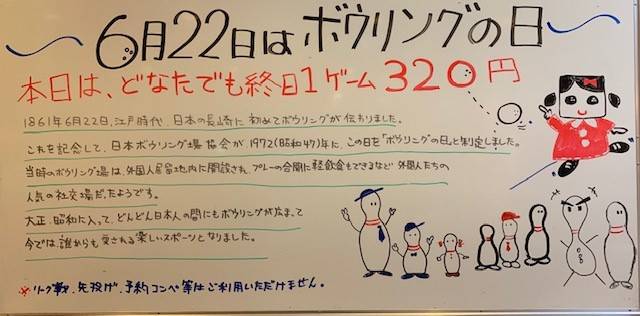 6月22日はボウリングの日
本日は、どなたでも終日1ゲーム320円
1861年6月22日、江戸時代、日本の長崎に初めてボウリングが伝わりました。
これを記念して、日本ボウリング場協会が1972(昭和47)年に、この日を「ボウリングの日」と制定しました。
当時のボウリング場は、外国人居留地内に開設され、プレーの合間に軽飲食もできるなど外国人たちの
人気の社交場だったようです。
大正、昭和に入って、どんどん日本人の間にもボウリングが広まって
今では、誰からも愛される楽しいスポーツとなりました。
※リーグ戦、先投げ、予約コンペ等はご利用いただけません。